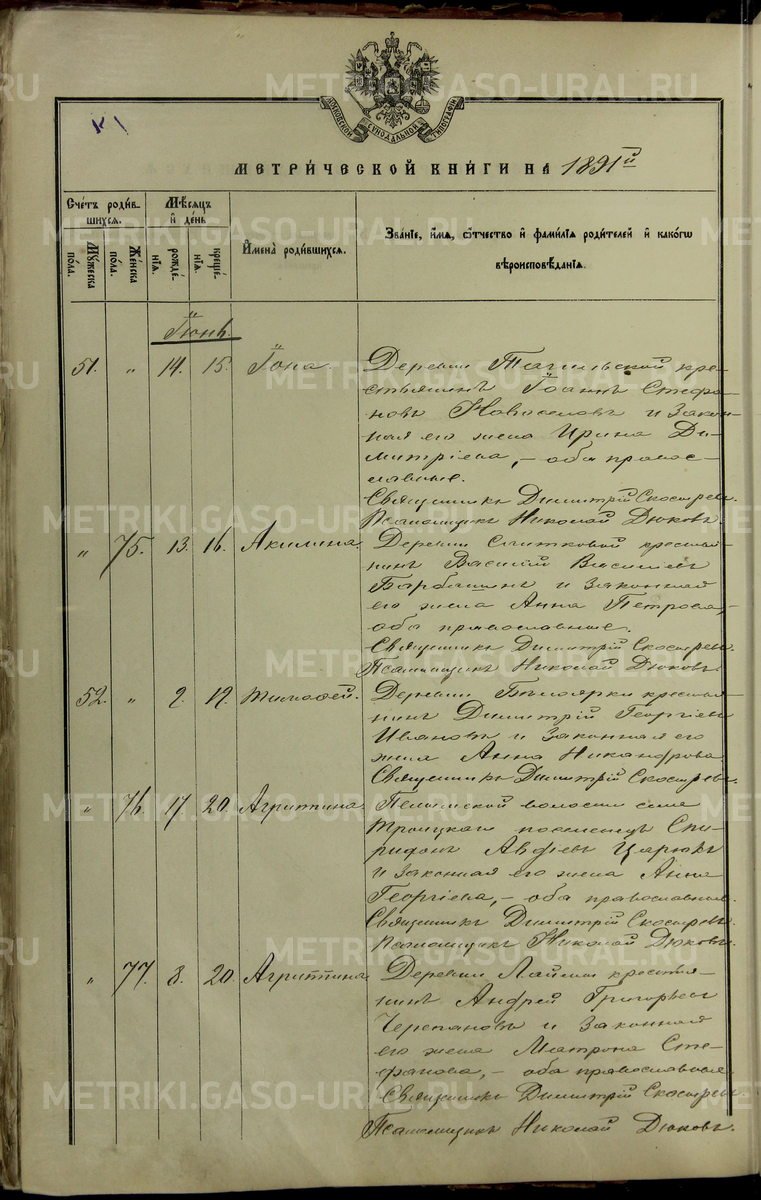 МОСКОВСКОЙ СУНОДАЛЬНОЙ ТИПОГРАФІИ
МЕТРИ́ЧЕСКОЙ КНИ́ГИ НА 1891й
Счетъ роди́в-
шихся.
Мѣсяцъ
и день
Имена̀ роди́вшихся.
Зва́нїе, и́мя, ѻ҆́тчество и҆ фами́лїѧ роди́телей и҆ како́гѡ
вѣроисповѣ́данїѧ.
Му́жеска
по́ла.
Же́нска
по́ла.
рожде́-
нїѧ.
креще́-
нїѧ.
Іюнь.
51. " 14. 15. Іона. Деревни Тагильской кре-
стьянинъ Іоаннъ Стефа-
новъ Новоселовъ и закон-
ная его жена Ирина Ди-
митріева, – оба право-
славные.
Священникъ Димитрій Скосыревъ.
Псаломщикъ Николай Дюковъ.
" 75. 13. 16. Акилина. Деревни крестья-
нинъ Василій Васильевъ
Барбашинъ и законная
его жена Анна Петрова,
оба православные.
Священникъ Димитрій Скосыревъ.
Псаломщикъ Николай Дюковъ.
52. " 9. 19. Тимофей. Деревни Бѣлоярки крестья-
нинъ Димитрій Георгіевъ
Ивановъ и законная его
жена Анна Никандрова
Священникъ Димитрій Скосыревъ.
" 76. 17. 20. Агриппина. Пелымской волости села
Троицкаго поселенецъ Спи-
ридонъ Авдіевъ Царюкъ
и законная его жена Анна
Георгіева, – оба православные.
Священникъ Димитрій Скосыревъ.
Псаломщикъ Николай Дюковъ.
" 77. 8. 20. Агриппина. Деревни Лаймы крестья-
нинъ Андрей Григорьевъ
Черепановъ и законная
его жена Матрона Сте-
фанова, – оба православные
Священникъ Димитрій Скосыревъ.
Псаломщикъ Николай Дюковъ.
METRIKI.GASO-URAL.RU